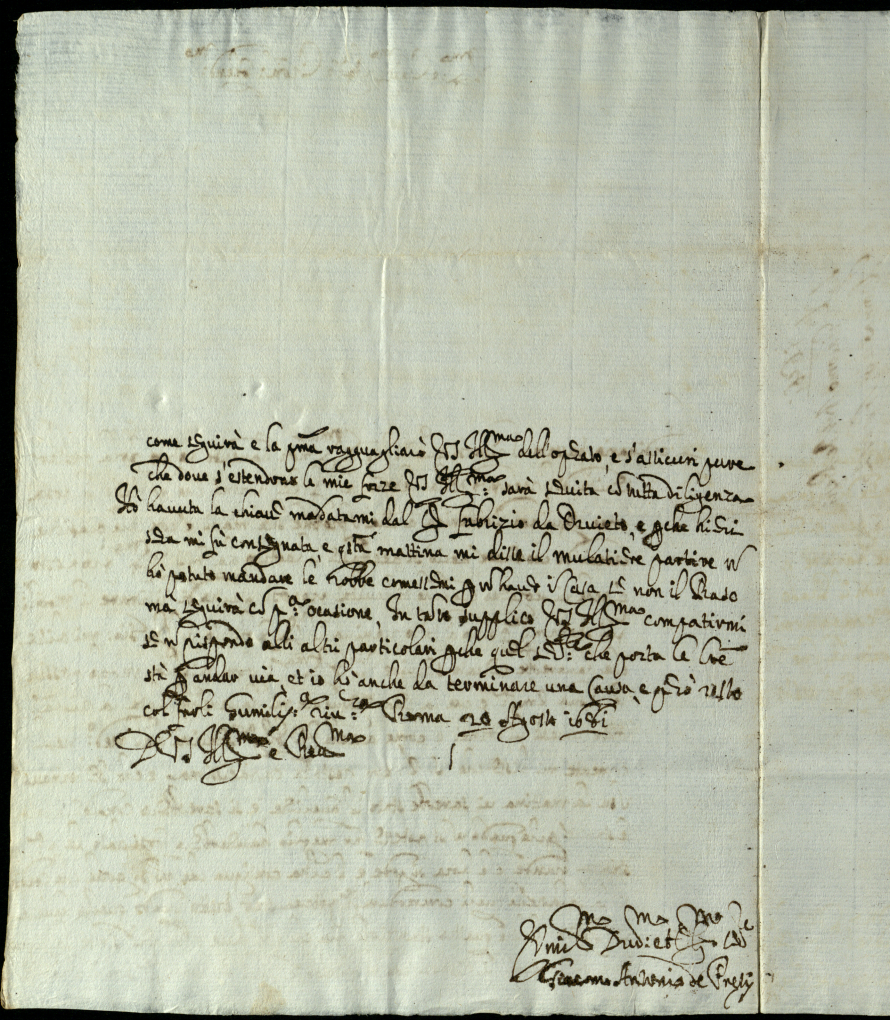 come seguirà e la p.ma ragguagliarò V.S. Ill.ma dell'oprato, e s'assicuri pure
che dove s'estendono le mie forze V.S. Ill.ma sarà servita co tutta diligenza
Hò havuta la chiave madatami dal S.r Fabrizio da Orvieto, e p che hieri
sera mi fu consegnata, e q.sta mattina mi disse il mulatiere partire n
ho potuto mandare le robbe comessemi p n havere i Casa se non il
ma seguirà co p.a ocasione, In tanto supplico V.S. Ill.ma compatirmi
se n rispondo alli altri particolari p che quel che porta le lre
stà p andar via, et io hò anche da terminare una Causa, e però resto
col farli humiliss.a riv.za Roma 28 Agosto 1681
D V.S. Ill.ma e Rev.ma
Humil.mo Devot.mo et Oblig.mo
Giacomo Antonio de